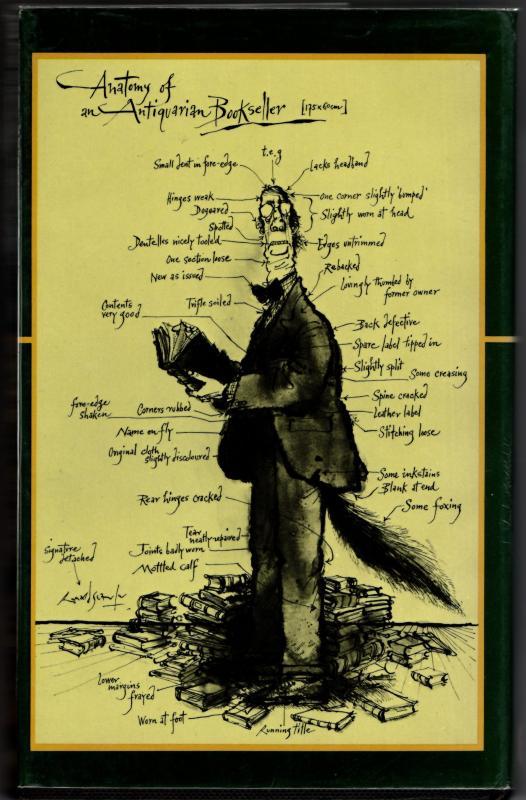 Anatomy of
an Antiquarian Bookseller [175x60cm]
t.e.g
Small dent in fore-edge
Lacks headband
Hinges weak
one corner slightly 'bumped'
Dogeared
Slightly worn at head
Spotted
Dentelles nicely tooled
Edges untrimmed
One section loose
Rebacked
New as issued
Lovingly thumbed by
former owner
Contents
very good
Trifle soiled
Back defective
Spare label tipped in
Slightly split
Some creasing
Spine cracked
fore-edge
shaken
Corners rubbed
Leather label
Name on fly
Stitching loose
Original cloth
slightly discoloured
Some inkstains
Blank at end
Rear hinges cracked
Some foxing
Tear
neatly repaired
signature
detached
Joints badly worn
Mottled calf
Lower
margins
frayed
Worn at foot
Running title